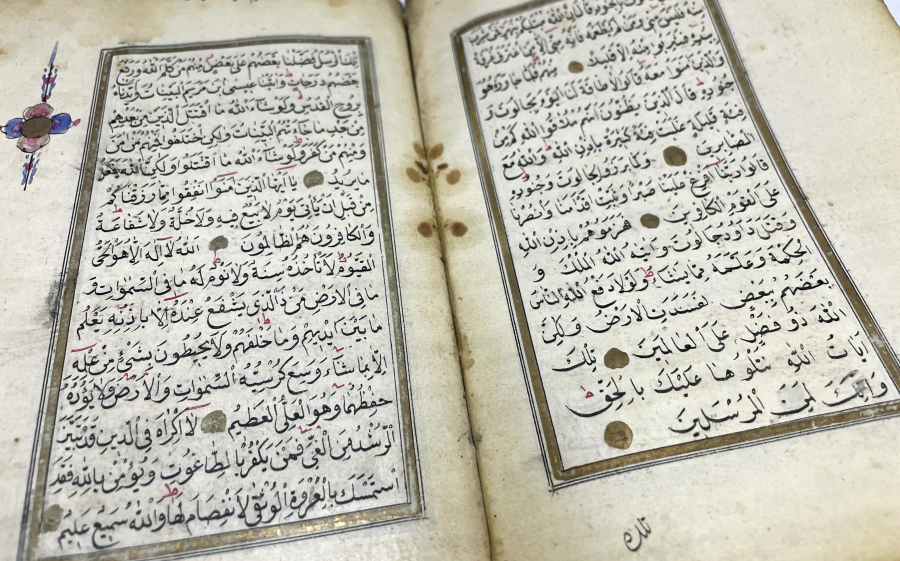 منه فليس مني ومن لم يطعمه فانه مني الا من اغترف غرفة
بيده فشربوا منه الا قليلا منهم فلما جاوزه هو
والذين امنوا معه قالوا لا طاقة لنا اليوم بجالوت و
جنوده قال الذين يظنون انهم ملاقوا الله كم من
فئة قليلة غلبت فئة كثيرة باذن الله والله مع
الصابرين ولما برزوا لجالوت وجنوده
قالوا ربنا افرغ علينا صبرا وثبت اقدامنا وانصرنا
على القوم الكافرين فهزموهم باذن الله
وقتل داود جالوت واتيه الله الملك و
الحكمة وعلمه مما يشاء ولولا دفع الله الناس
بعضهم ببعض لفسدت الارض ولكن
الله ذو فضل على العالمين تلك
ايات الله نتلوها عليك بالحق
وانك لمن المرسلين
تلك
تلك الرسل فضلنا بعضهم على بعض منهم من كلم الله ورفع
بعضهم درجات واتينا عيسى بن مريم البينات وايدناه
بروح القدس ولو شاء الله ما اقتتل الذين من بعدهم
من بعد ما جاءتهم البينات ولكن اختلفوا فمنهم من امن
ومنهم من كفر ولو شاء الله ما اقتتلوا ولكن الله يفعل
ما يريد يا ايها الذين امنوا انفقوا مما رزقناكم
من قبل ان ياتي يوم لا بيع فيه ولا خلة ولا شفاعة
والكافرون هم الظالمون الله لا اله الا هو الحي
القيوم لا تاخذه سنة ولا نوم له ما في السموات و
ما في الارض من ذا الذي يشفع عنده الا باذنه يعلم
ما بين ايديهم وما خلفهم ولا يحيطون بشيء من علمه
الا بما شاء وسع كرسيه السموات والارض ولا يؤده
حفظهما وهو العلي العظيم لا اكراه في الدين قد تبين
الرشد من الغي فمن يكفر بالطاغوت ويؤمن بالله فقد
استمسك بالعروة الوثقى لا انفصام لها والله سميع عليم